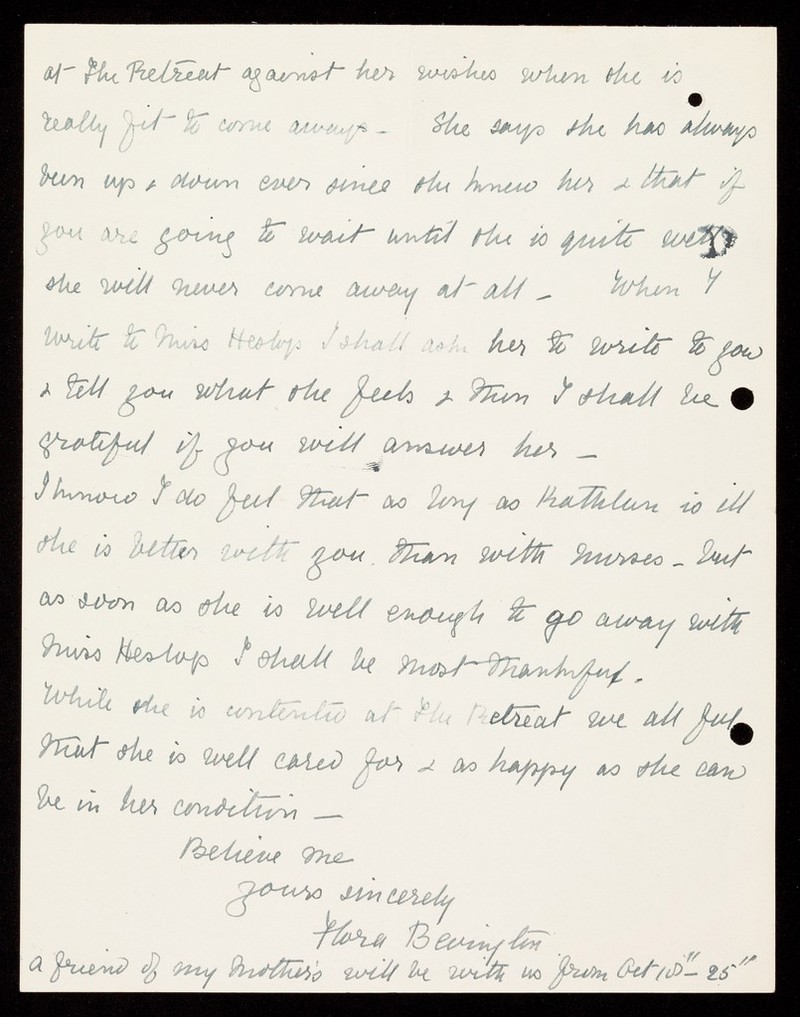 at The Retreat against her wishes when she is
really fit to come away - She says she has always
been up & down ever since she knew her & that if
you are going to wait until she is quite well
she will never come away at all - When I
write to Miss Heslop I shall ask her to write to you
& tell you what she feels & then I shall be
grateful if you will answer her -
I know I do feel that as long as Kathleen is ill
she is better with you than with nurses - but
as soon as she is well enough to go away with
Miss Heslop I shall be most thankful.
While she is contented at The Retreat we all feel
that she is well cared for & as happy as she can
be in her condition -
Believe me
yours sincerely
Flora Bevington
A friend of my Mother's will be with us from Oct - 25"